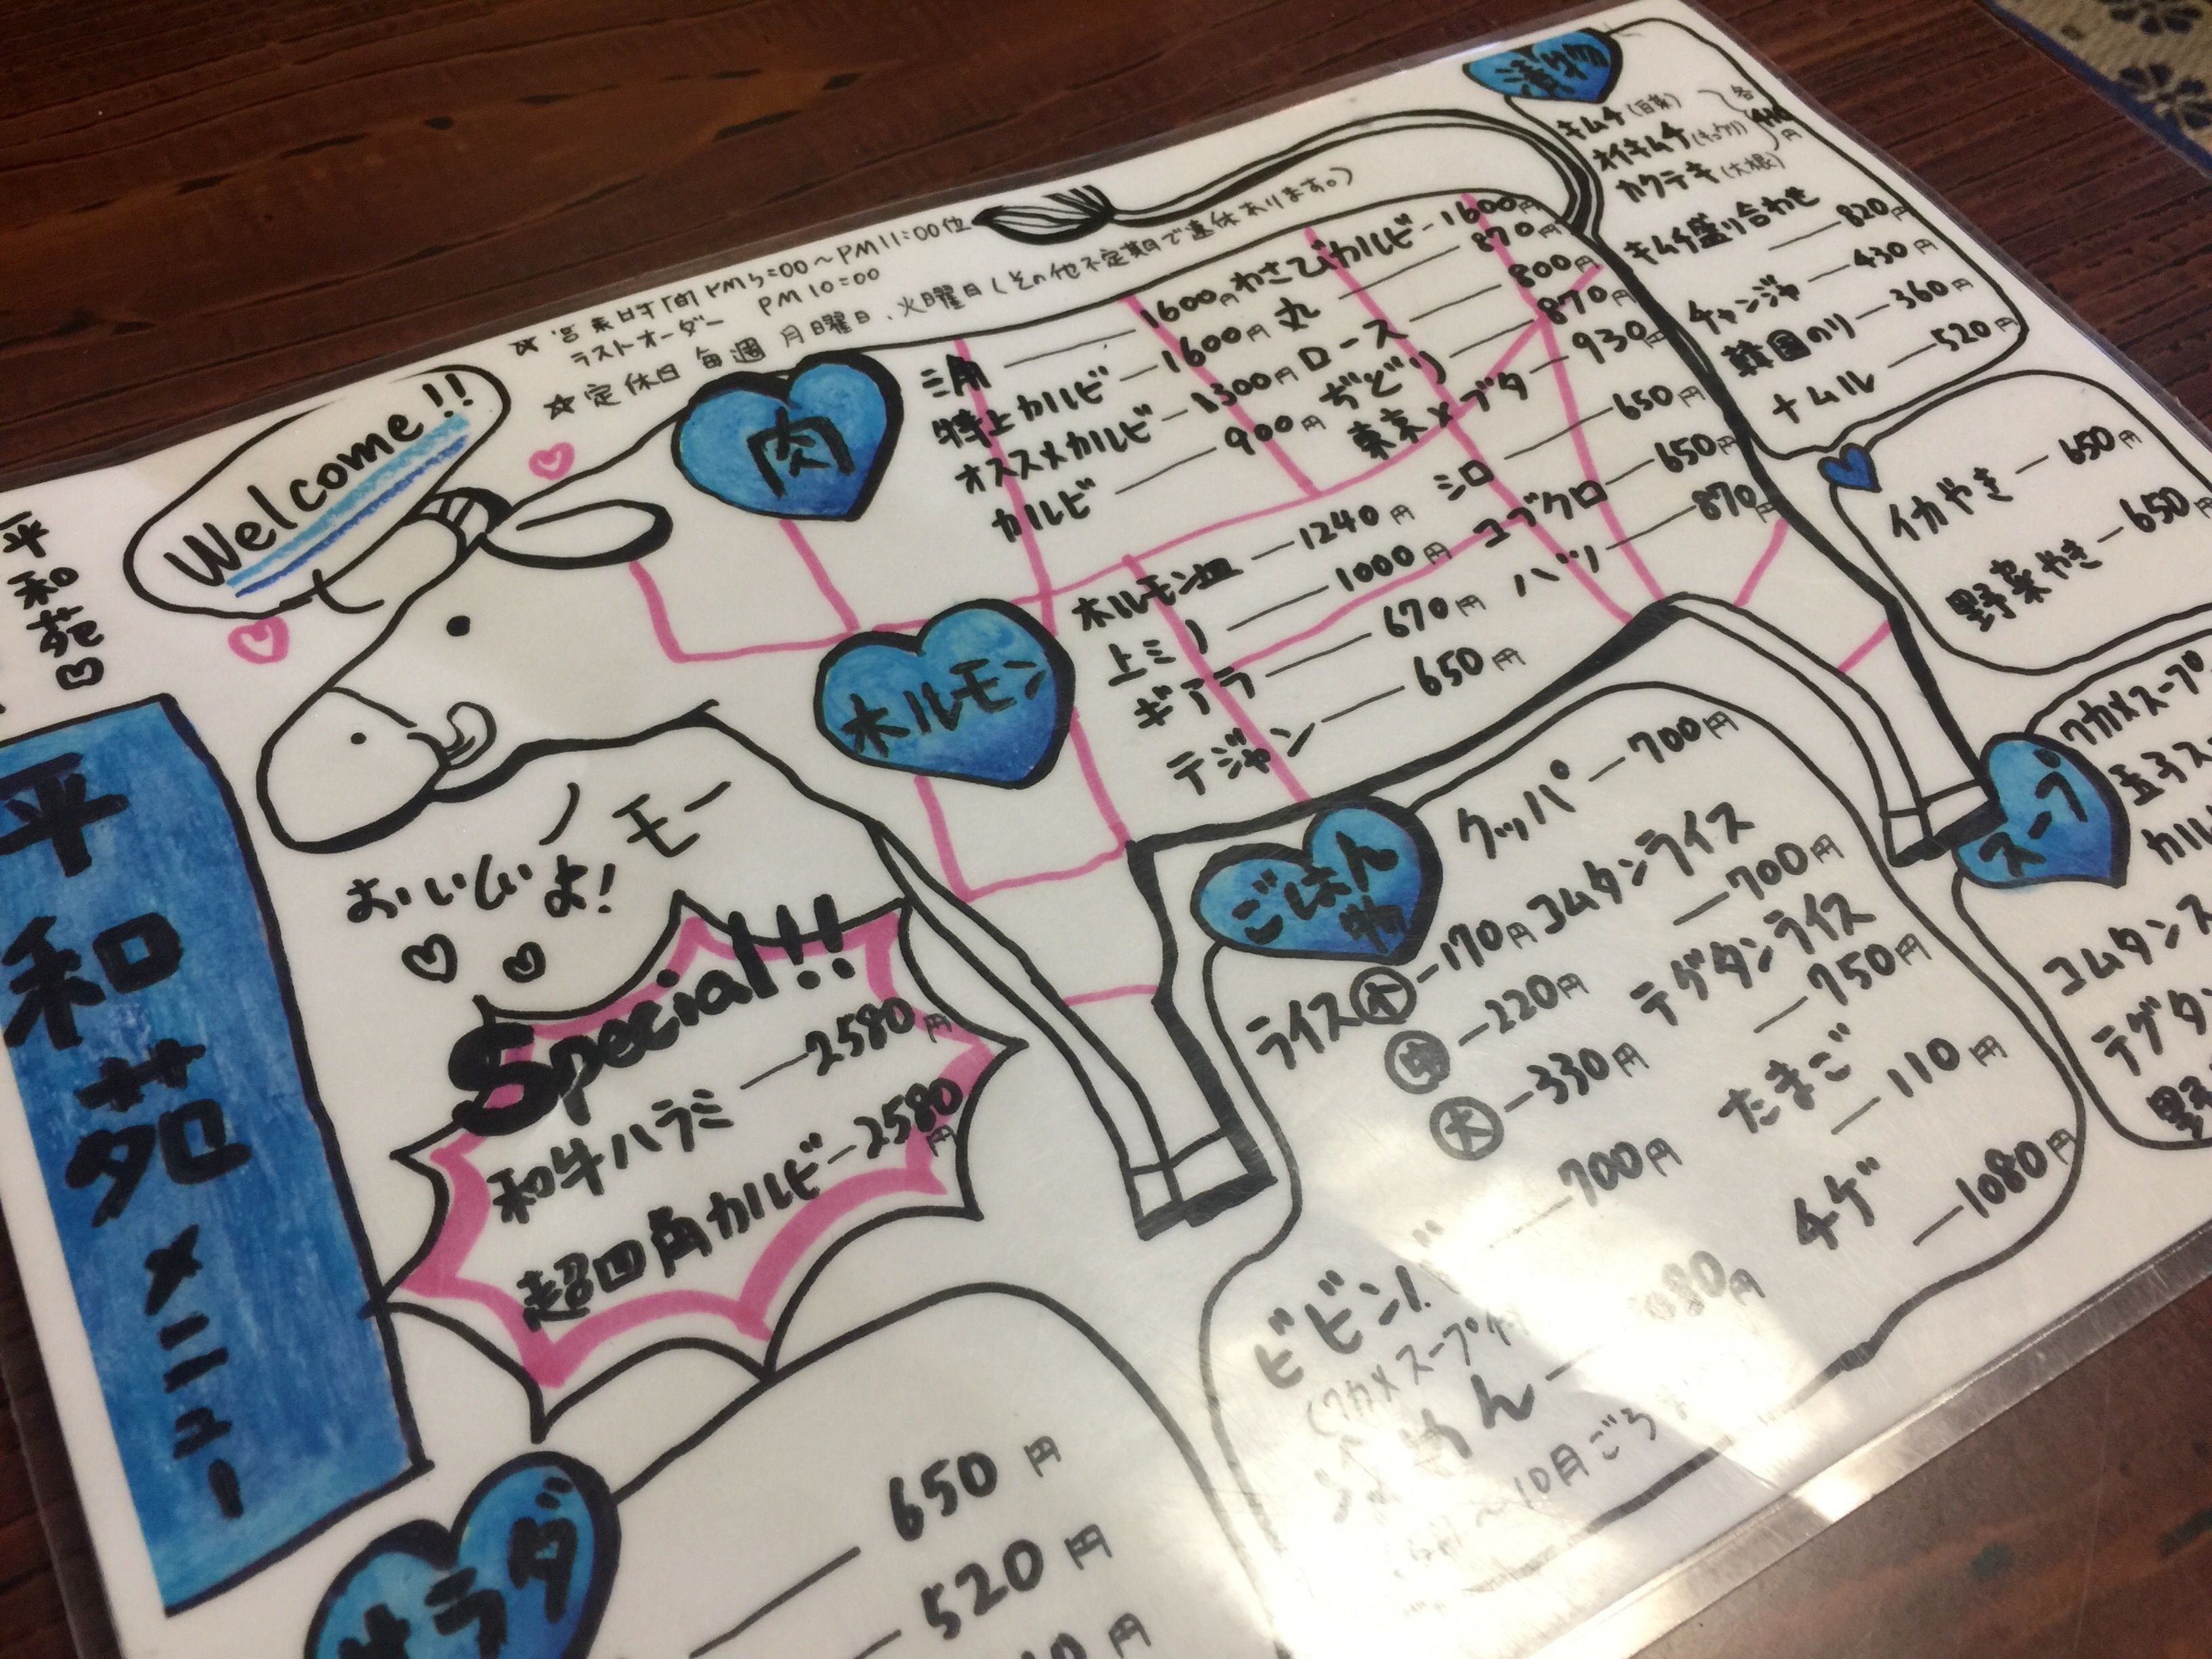 ☆営業時間 PM5:00〜PM11:00位
ラストオーダー PM10:00
☆定休日 毎週 月曜日、火曜日(その他不定期日で連休あります。)
Welcome!!
平和苑
平和苑メニュー
おいしいよ!
モー
Special!!
和牛ハラミ 2580円
超四角カルビ 2580円
肉
三角 1600円
特上カルビ 1600円
オススメカルビ 1300円
カルビ 900円
わさびカルビ 1600円
丸 870円
ロース 800円
ぢどり 870円
東京メブタ 930円
ホルモン
ホルモン皿 1240円
上ミノ 1000円
ギアラ 670円
テジャン 650円
シロ 650円
コブクロ 650円
ハツ 870円
漬物
キムチ(白菜)
オイキムチ(キュウリ)
カクテキ(大根)
各
円
キムチ盛り合わせ
820円
チャンジャ 430円
韓国のり 360円
ナムル 520円
イカやき 650円
野菜やき 650円
スープ
ワカメスープ
玉子ス
カル
コムタンス
テグタン
ごはん物
ライス小 170円
中 220円
大 330円
ビビンバ 700円
(ワカメスープ付
めん 1080円
10月ごろ
クッパ 700円
コムタンライス
700円
テグタンライス
750円
たまご
110円
チゲ
1080円
サラダ
650円
520円
円